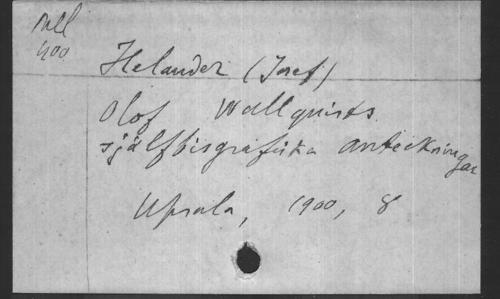 1400
Helander (Josef)
Olof Wallquists
självbiografiska anteckningar
Upsala, 1900, 8